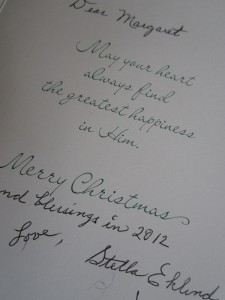 Dear Margaret
May your heart
always find
the greatest happiness
in Him.
Merry Christmas
nd blessings in 2012
Love,
Stella Eklund